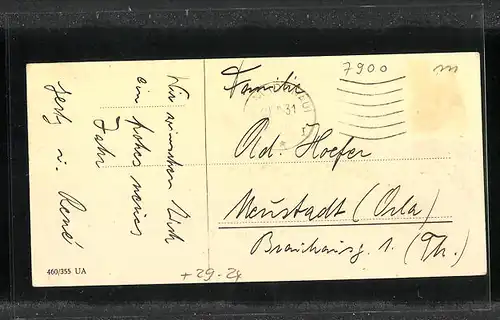 Wir wünschen Euch
ein frohes neues
Jahr
Gerty u. René
460/355 UA
+ 29.-24
7900
m
31
Familie
Ad. Hoefer
Neustadt (Orla)
Brauhausg. 1. (Th.)